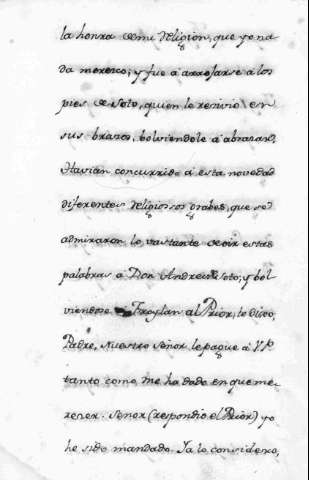 la honra de mi Religion, que yo na
da merezco; y fue á arrojarse á los
pies de Soto, quien le recivio en
sus brazos, bolviendole á abrazar.
Havian concurrido á esta novedad
diferentes Religiosos grabes, que se
admiraron lo vastante de oir estas
palabras a Don Andres de Soto; y bol
viendose Froylan al Prior, le dijo,
Padre, Nuestro Señor le pague á V.P
tanto como me ha dado en que me
recer. Señor (respondio el Prior) yo
he sido mandado. Ya lo considero,